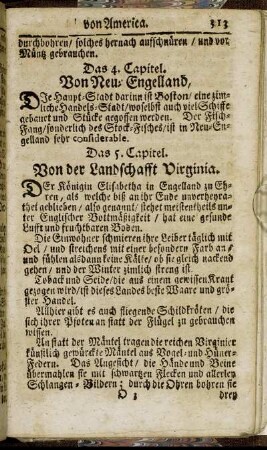 von America. 313
durchbohren / solches hernach aufschnüren / und vor
Müntz gebrauchen.
Das 4. Capitel.
Von Neu-Engelland,
DJe Haupt-Stadt darinn ist Boston / eine zim-
liche Handels-Stadt / woselbst auch viel Schiffe
gebauet und Stücke gegossen werden. Der Fisch-
Fang / sonderlich des Stock-Fisches / ist in Neu-En-
gelland sehr considerable.
Das 5. Capitel.
Von der Landschafft Virginia.
DEr Königin Elisabetha in Engelland zu Eh-
ren, als welche biß an ihr Ende unverheyra-
thet geblieben / also genannt / stehet meistentheils un-
ter Englischer Bottmäßigkeit / hat eine gesunde
Lufft und fruchtbaren Boden.
Die Einwohner schmieren ihre Leiber täglich mit
Oel / und streichens mit einer besondern Farb an /
und fühlen alsdann keine Kälte / ob sie gleich nackend
gehen / und der Winter zimlich streng ist.
Toback und Seide / die aus einem gewissen Kraut
gezogen wird / ist dieses Landes beste Waare und grö-
ster Handel.
Allhier gibt es auch fliegende Schildkröten / die
sich ihrer Pfoten an statt der Flügel zu gebrauchen
wissen.
An statt der Mäntel tragen die reichen Virginier
künstlich gewürckte Mäntel aus Vogel- und Hüner-
Federn. Das Angesicht / die Hände und Beine
übermahlen sie mit schwartzen Flecken und allerley
Schlangen-Bildern; durch die Ohren bohren sie
drey